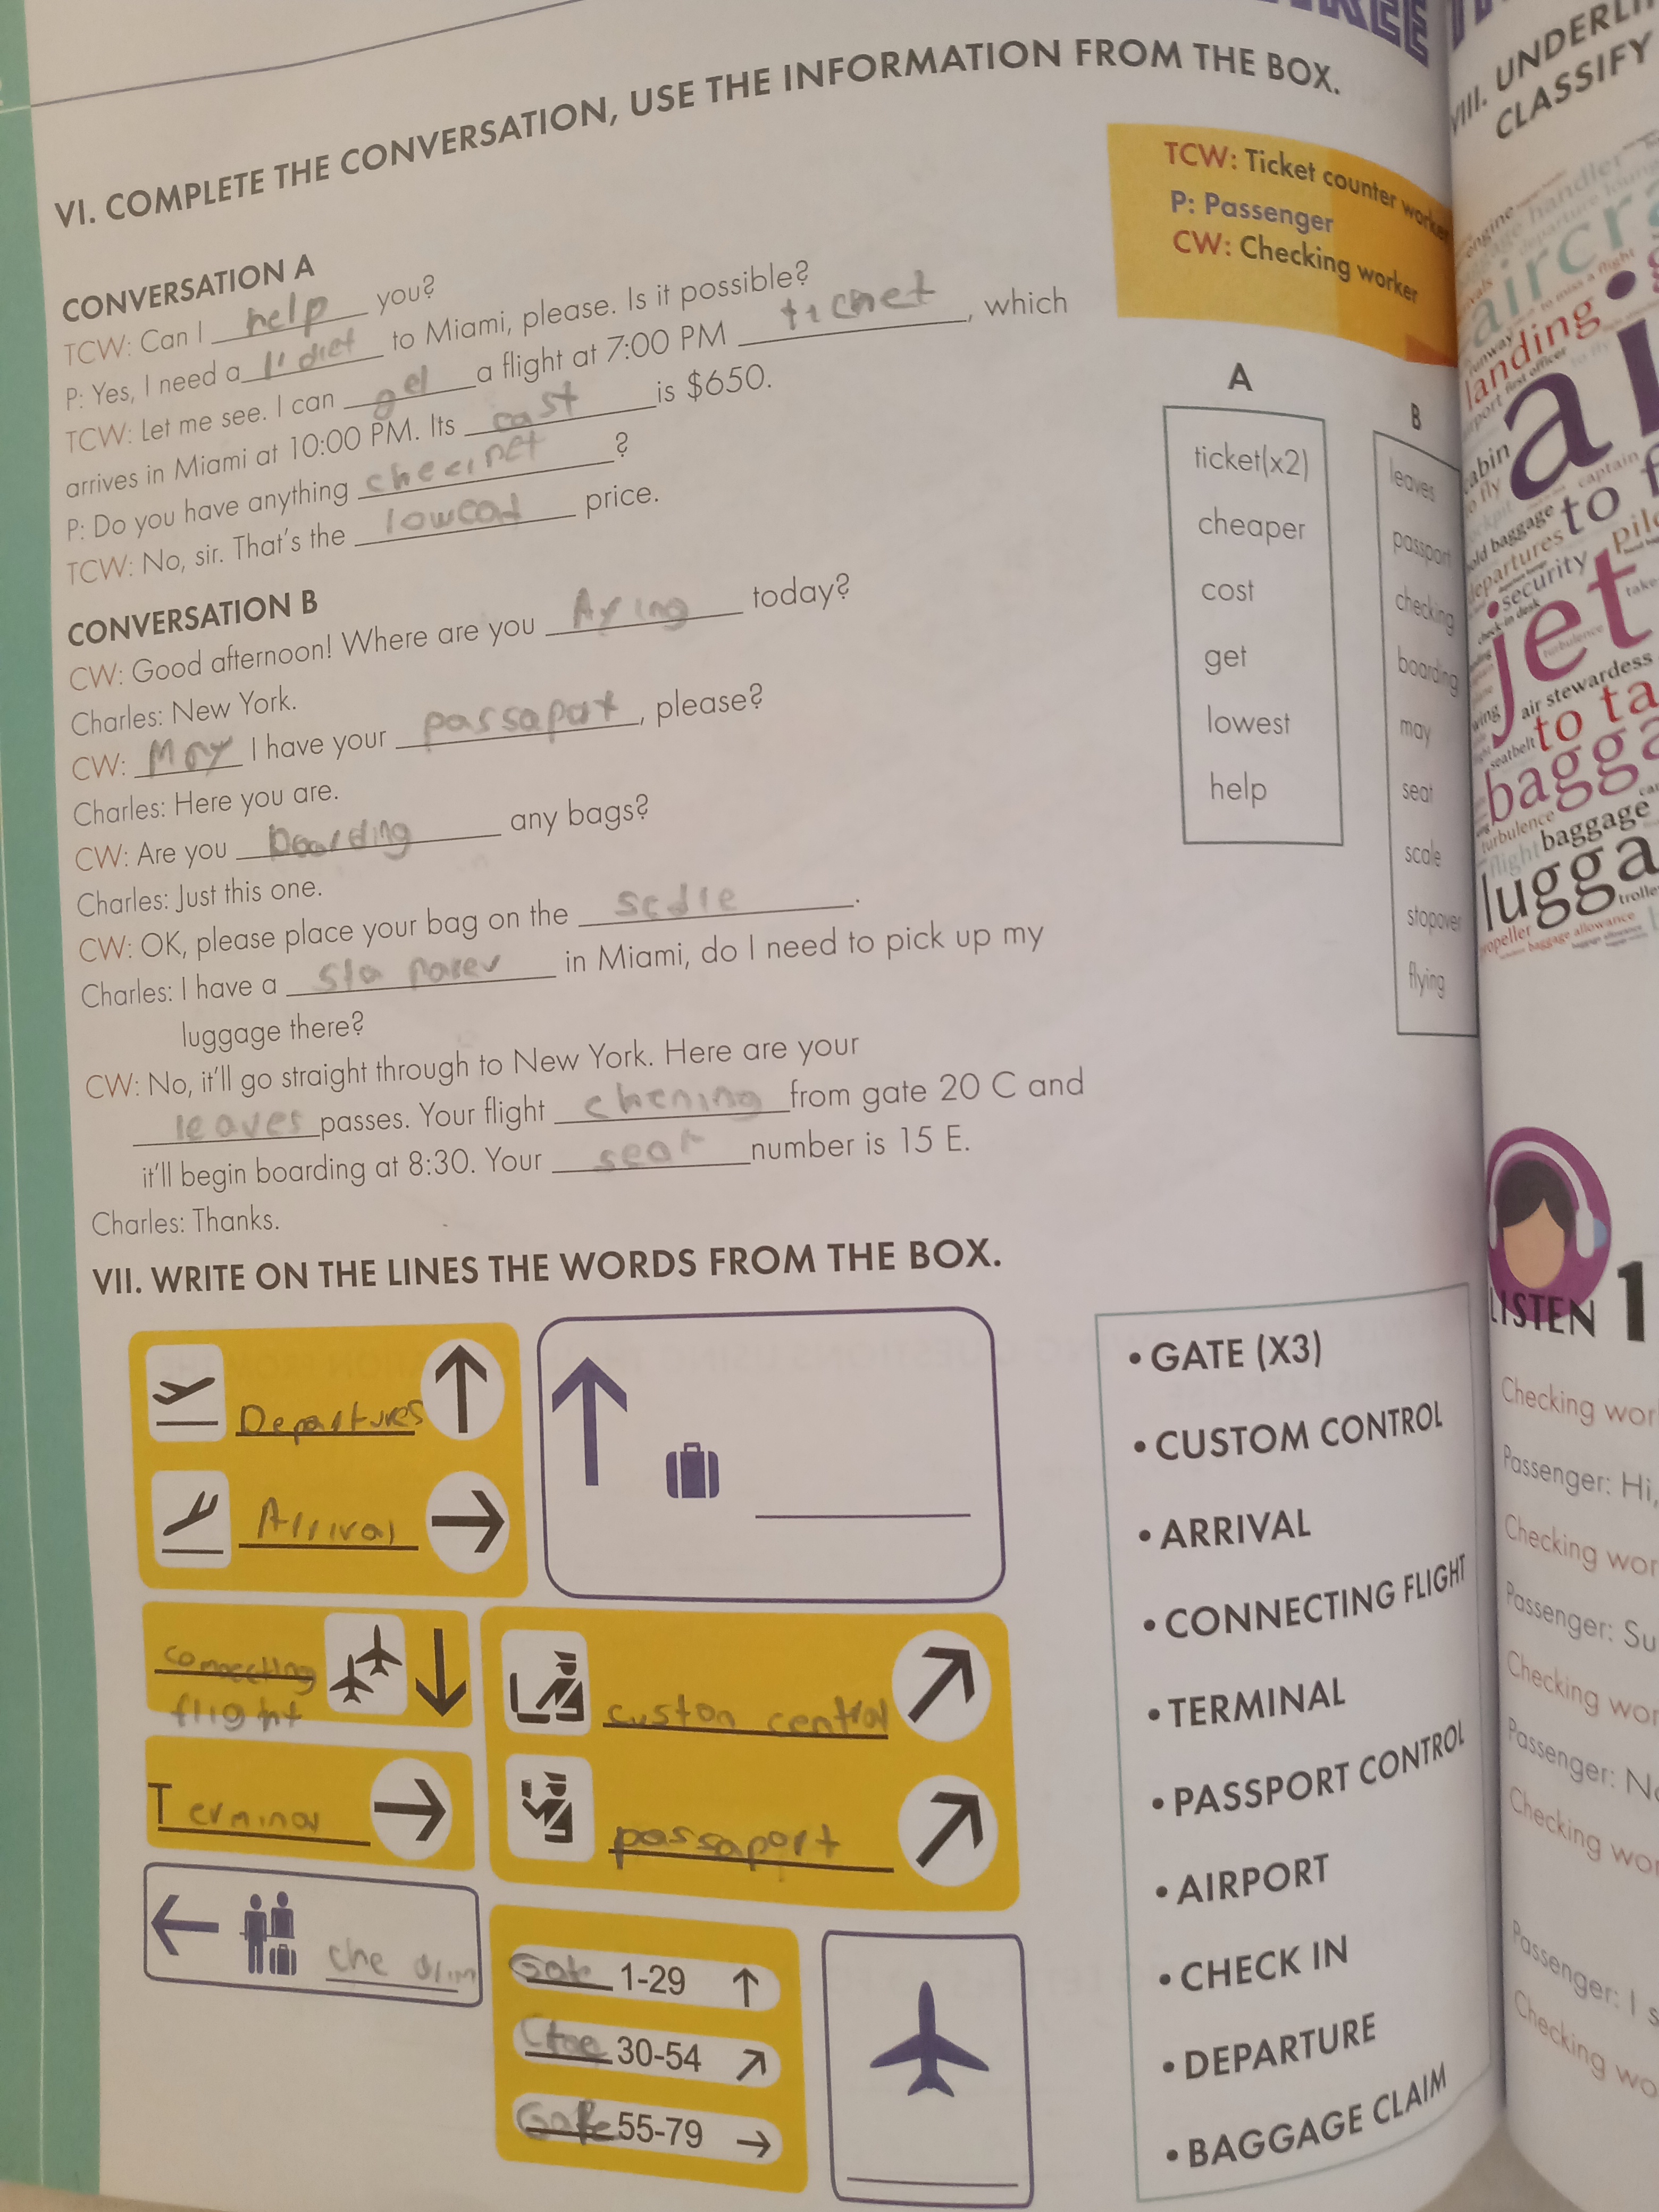 VI. COMPLETE THE CONVERSATION, USE THE INFORMATION FROM THE BOX.
TCW: Ticket counter worker
P: Passenger
CW: Checking worker
CONVERSATION A
TCW: Can I help you?
P: Yes, I need a to Miami, please. Is it possible?
TCW: Let me see. I can gel a flight at 7:00 PM ticnet, which
arrives in Miami at 10:00 PM. Its cast is $650.
P: Do you have anything ?
TCW: No, sir. That's the price.
CONVERSATION B
CW: Good afternoon! Where are you today?
Charles: New York.
CW: May I have your passaport, please?
Charles: Here you are.
CW: Are you boarding any bags?
Charles: Just this one.
CW: OK, please place your bag on the .
Charles: I have a in Miami, do I need to pick up my
luggage there?
CW: No, it'll go straight through to New York. Here are your
leaves passes. Your flight from gate 20 C and
it'll begin boarding at 8:30. Your number is 15 E.
Charles: Thanks.
A
ticket(x2)
cheaper
cost
get
lowest
help
B
leaves
passport
checking
boarding
may
seat
scale
stopover
flying
VII. WRITE ON THE LINES THE WORDS FROM THE BOX.
Departures
Arrival
connecting
flight
custon central
Terminal
passaport
Gate 1-29
30-54
Gate 55-79
• GATE (X3)
• CUSTOM CONTROL
• ARRIVAL
• CONNECTING FLIGHT
• TERMINAL
• PASSPORT CONTROL
• AIRPORT
• CHECK IN
• DEPARTURE
• BAGGAGE CLAIM
VIII. UNDERLI
CLASSIFY
engine
handler
aircra
landing
runway
first officer
cabin
to fly
captain
hold baggage
departures
security
check-in desk
jet
turbulence
air stewardess
seatbelt
to ta
bagga
turbulence
flight
baggage
lugga
trolle
propeller
baggage allowance
LISTEN 1
Checking wor
Passenger: Hi,
Checking wor
Passenger: Su
Checking wor
Passenger: No
Checking wor
Passenger: I s
Checking wo